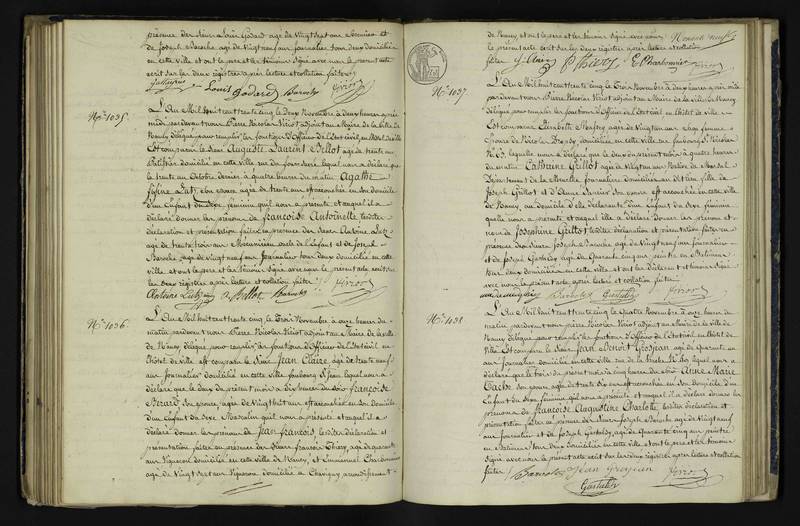 présence des Sieurs Louis Godard agé de vingt sept ans Menuisier et
de Joseph Baroche agé de vingt neuf ans journalier tous deux domiciliés
en cette ville et ont le père et les témoins signé avec nous le présent acte
écrit sur les deux registres après lecture et collation faites
Louis Godard Baroche
N.° 1035.
L'An Mil huit cent trente cinq le deux Novembre à deux heures après
midi pardevant nous Pierre Nicolas Viriot adjoint au Maire de la Ville de
Nancy délégué pour remplir les fonctions d'officier de l'état civil en l'hôtel de ville
Est comparu le Sieur Auguste Laurent Bellot agé de trente ans
domicilié en cette ville rue du lequel nous a déclaré que
le trente un Octobre dernier à quatre heures du matin Agathe
Lutz son épouse agée de trente ans est accouchée en son domicile
d'un Enfant du sexe féminin qu'il nous a présenté et auquel il a
déclaré donner les prénoms de Françoise Antoinette lesdites
déclaration et présentation faites en présence des Sieurs Antoine Lutz
agé de trente trois ans oncle de l'Enfant et de Joseph
Baroche agé de vingt neuf ans journalier tous deux domiciliés en cette
ville et ont le père et les témoins signé avec nous le présent acte écrit sur
les deux registres après lecture et collation faites
Antoine Lutz A. Bellot Baroche
N.° 1036.
L'An Mil huit cent trente cinq le trois Novembre à onze heures du
matin pardevant nous Pierre Nicolas Viriot adjoint au Maire de la ville
de Nancy délégué pour remplir les fonctions d'officier de l'état civil en
l'hôtel de ville est comparu le Sieur Jean Claire agé de trente neuf
ans journalier domicilié en cette ville faubourg St Jean lequel nous a
déclaré que le deux du présent mois à dix heures du soir Françoise
Bérard son épouse agée de vingt huit ans est accouchée en son domicile
d'un Enfant du sexe Masculin qu'il nous a présenté et auquel il a
déclaré donner les prénoms de Jean François lesdites déclaration et
présentation faites en présence des Sieurs François Thiery agé de quarante
ans Vigneron domicilié en cette ville de Nancy, et Emmanuel Charbonnier
agé de vingt sept ans Vigneron domicilié à Chavigny arrondissement
de Nancy et ont le père et les témoins signé avec nous
le présent acte écrit sur les deux registres après lecture et collation
faites J. Claire F Thiery E Charbonnier
N.° 1037.
L'An Mil huit cent trente cinq le Trois Novembre à deux heures après midi
pardevant nous Pierre Nicolas Viriot adjoint au Maire de la ville de Nancy
délégué pour remplir les fonctions d'officier de l'état civil en l'hôtel de ville
Est comparue Elisabeth agée de vingt un ans Sage femme
épouse de Nicolas domiciliée en cette ville rue faubourg St Nicolas
laquelle nous a déclaré que le deux du présent mois à quatre heures
du matin Catherine Grillot agée de vingt ans
Département de la Meurthe journalière domiciliée au dit lieu fille de
Joseph Grillot et d'Anne son épouse est accouchée en cette ville
de Nancy, au domicile d'elle déclarante d'un Enfant du sexe féminin
qu'elle nous a présenté et auquel elle a déclaré donner les prénoms et
nom de Joséphine Grillot lesdites déclaration et présentation faites en
présence des Sieurs Joseph Baroche agé de vingt neuf ans journalier
et de Joseph Gastaldy agé de quarante cinq ans peintre en Bâtimens
tous deux domiciliés en cette ville et ont les déclarante et témoins signé
avec nous le présent acte après lecture et collation faites
Baroche Gastaldy
N.° 1038.
L'An Mil huit cent trente cinq le quatre Novembre à onze heures du
matin pardevant nous pierre Nicolas Viriot adjoint au Maire de la ville de
Nancy délégué pour remplir les fonctions d'officier de l'état civil en l'hôtel de
ville Est comparu le Sieur Jean Benoit Grosjean agé de quarante un
ans journalier domicilié en cette ville rue de la lequel nous a
déclaré que le trois du présent mois à cinq heures du soir Anne Marie
son épouse agée de trente six ans est accouchée en son domicile d'un
Enfant du sexe féminin qu'il nous a présenté et auquel il a déclaré donner les
prénoms de Françoise Augustine Charlotte lesdites déclaration et
présentation faites en présence des Sieurs Joseph Baroche agé de vingt neuf
ans journalier et de Joseph Gastaldy, agé de quarante cinq ans peintre
en Bâtimens tous deux domiciliés en cette ville et ont le père et les témoins
signé avec nous le présent acte écrit sur les deux registres après lecture et collation
faites
Baroche Jean Grosjean
Gastaldy